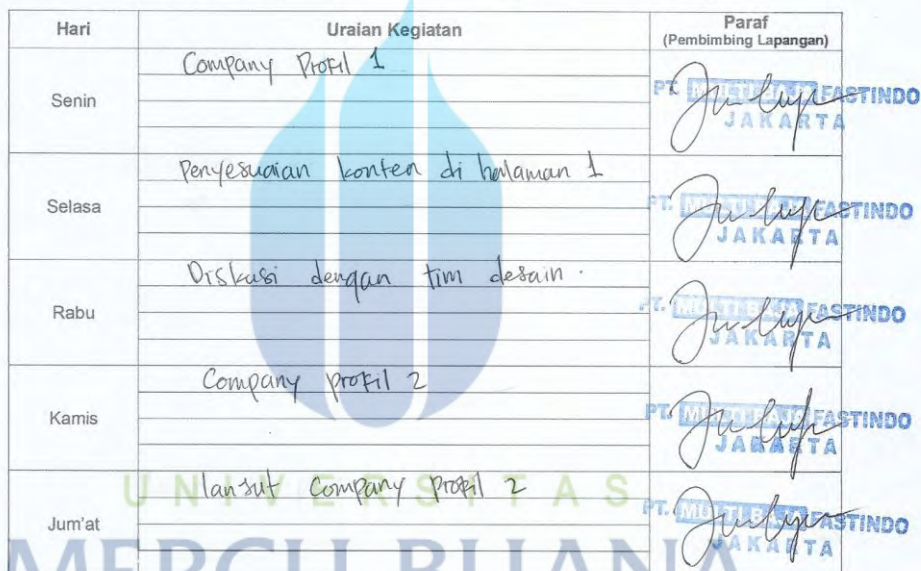 Hari Uraian Kegiatan Paraf
(Pembimbing Lapangan)
Senin Company Profil 1
PT. MULTI BAJA FASTINDO
JAKARTA
Selasa Penyesuaian konten di halaman 1
PT. MULTI BAJA FASTINDO
JAKARTA
Rabu Diskusi dengan tim desain.
PT. MULTI BAJA FASTINDO
JAKARTA
Kamis Company profil 2
PT. MULTI BAJA FASTINDO
JAKARTA
Jum'at lanjut Company Profil 2
PT. MULTI BAJA FASTINDO
JAKARTA
UNIVERSITAS
MERCU BUANA